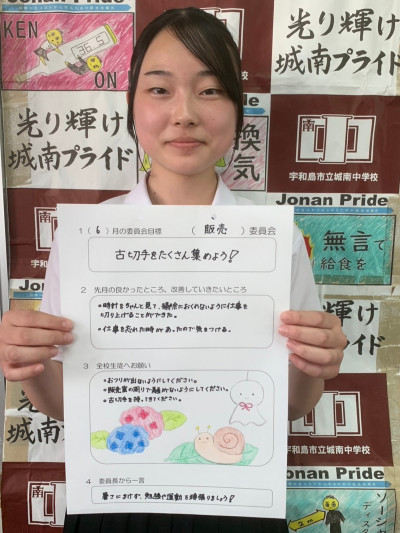 Jonan Pride
KEN
36.5
ON
光り輝け
城南プライド
光り輝け
城南プライド
南
中
宇和島市立城南中学校
換気
Jonan Pride
無言で
給食を
光り輝け
城南プライド
南
宇和島市立城南中学校
Jonan Pride
ソーシャ
ディス
2m
1（6）月の委員会目標 （販売）委員会
古切手をたくさん集めよう！
2 先月の良かったところ、改善していきたいところ
・時計をちゃんと見て、掃除におくれないように仕事を
切り上げることができた。
・仕事を忘れた時があったので気をつける。
3 全校生徒へお願い
・おつりが出ないようにしてください。
・販売室の周りで騒がないようにしてください。
・古切手を持ってきてください。
4 委員長から一言
暑さにまけず、勉強や運動を頑張りましょう！